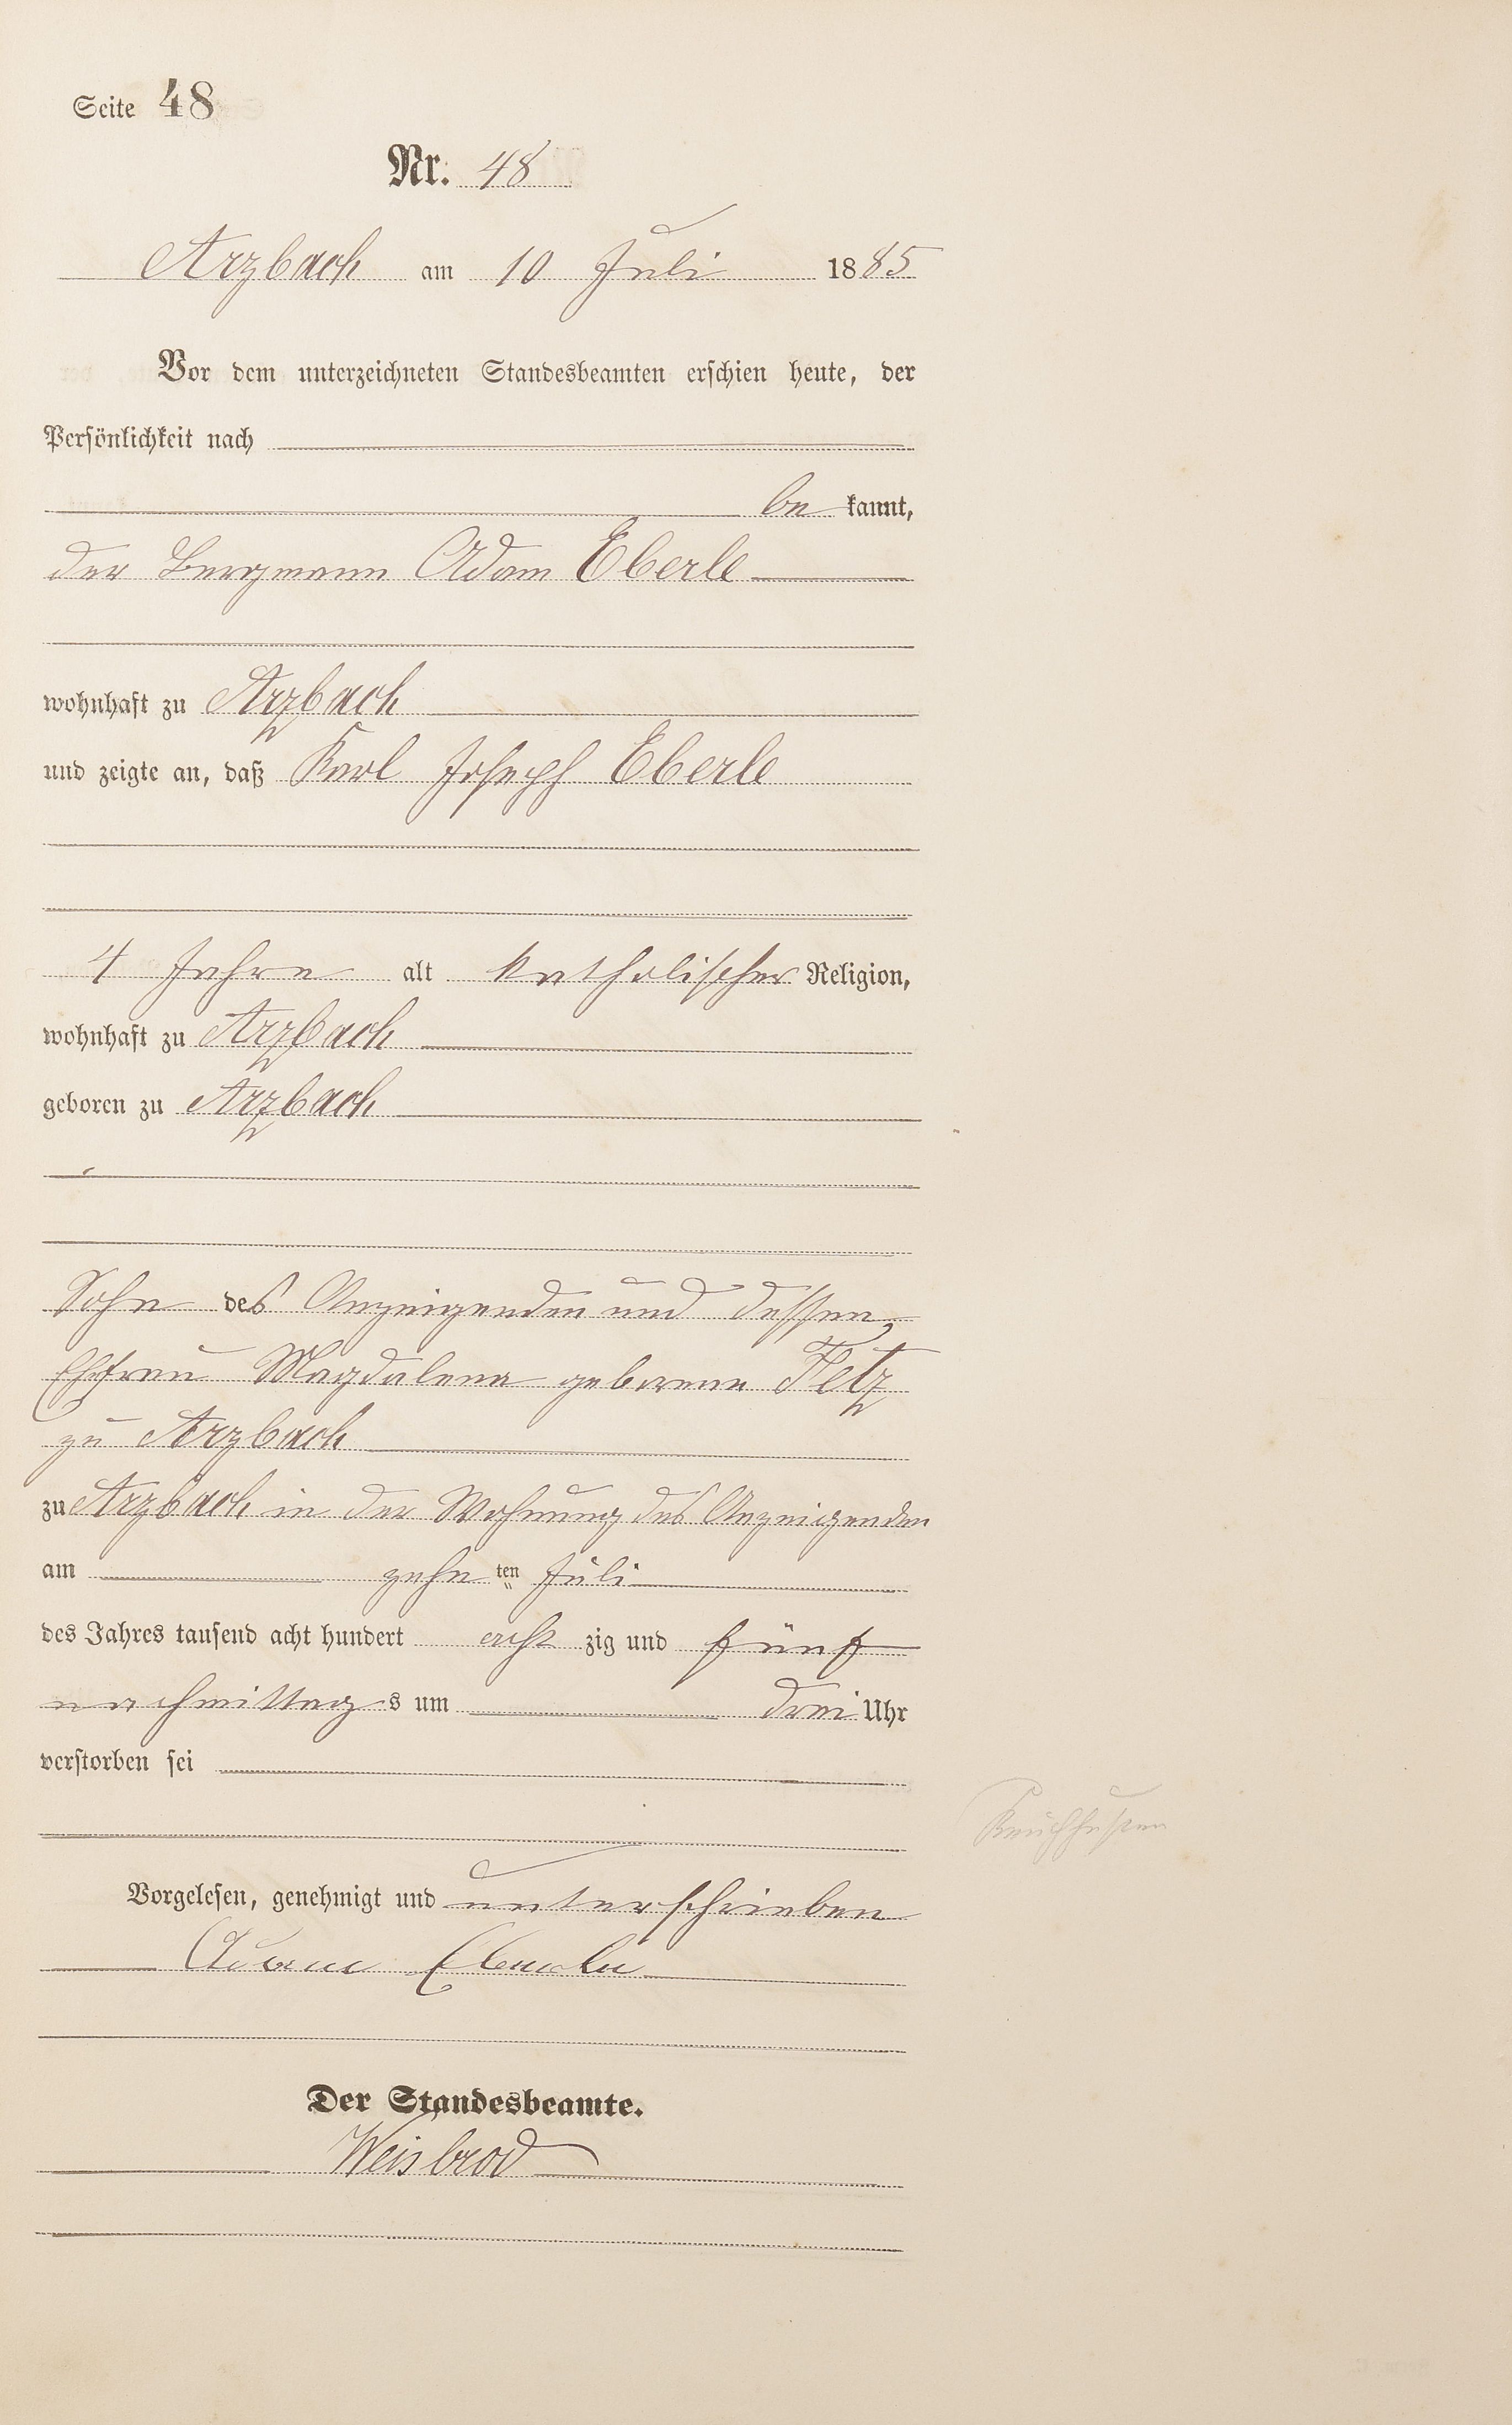 Seite 48
Nr. 48
Arzbach am 10 Juli 1885
Vor dem unterzeichneten Standesbeamten erschien heute, der
Persönlichkeit nach
be kannt,
der Bergmann Adam Eberle
wohnhaft zu Arzbach
und zeigte an, daß Karl Joseph Eberle
4 Jahre alt katholischer Religion,
wohnhaft zu Arzbach
geboren zu Arzbach
Sohn des Anzeigenden und dessen
Ehefrau Magdalena geborene
zu Arzbach
zu Arzbach in der Wohnung des Anzeigenden
am zehn ten Juli
des Jahres tausend acht hundert acht zig und fünf
nachmittag s um drei Uhr
verstorben sei
Keuchhusten
Vorgelesen, genehmigt und unterschrieben
Adam Eberle
Der Standesbeamte.
Weisbrod